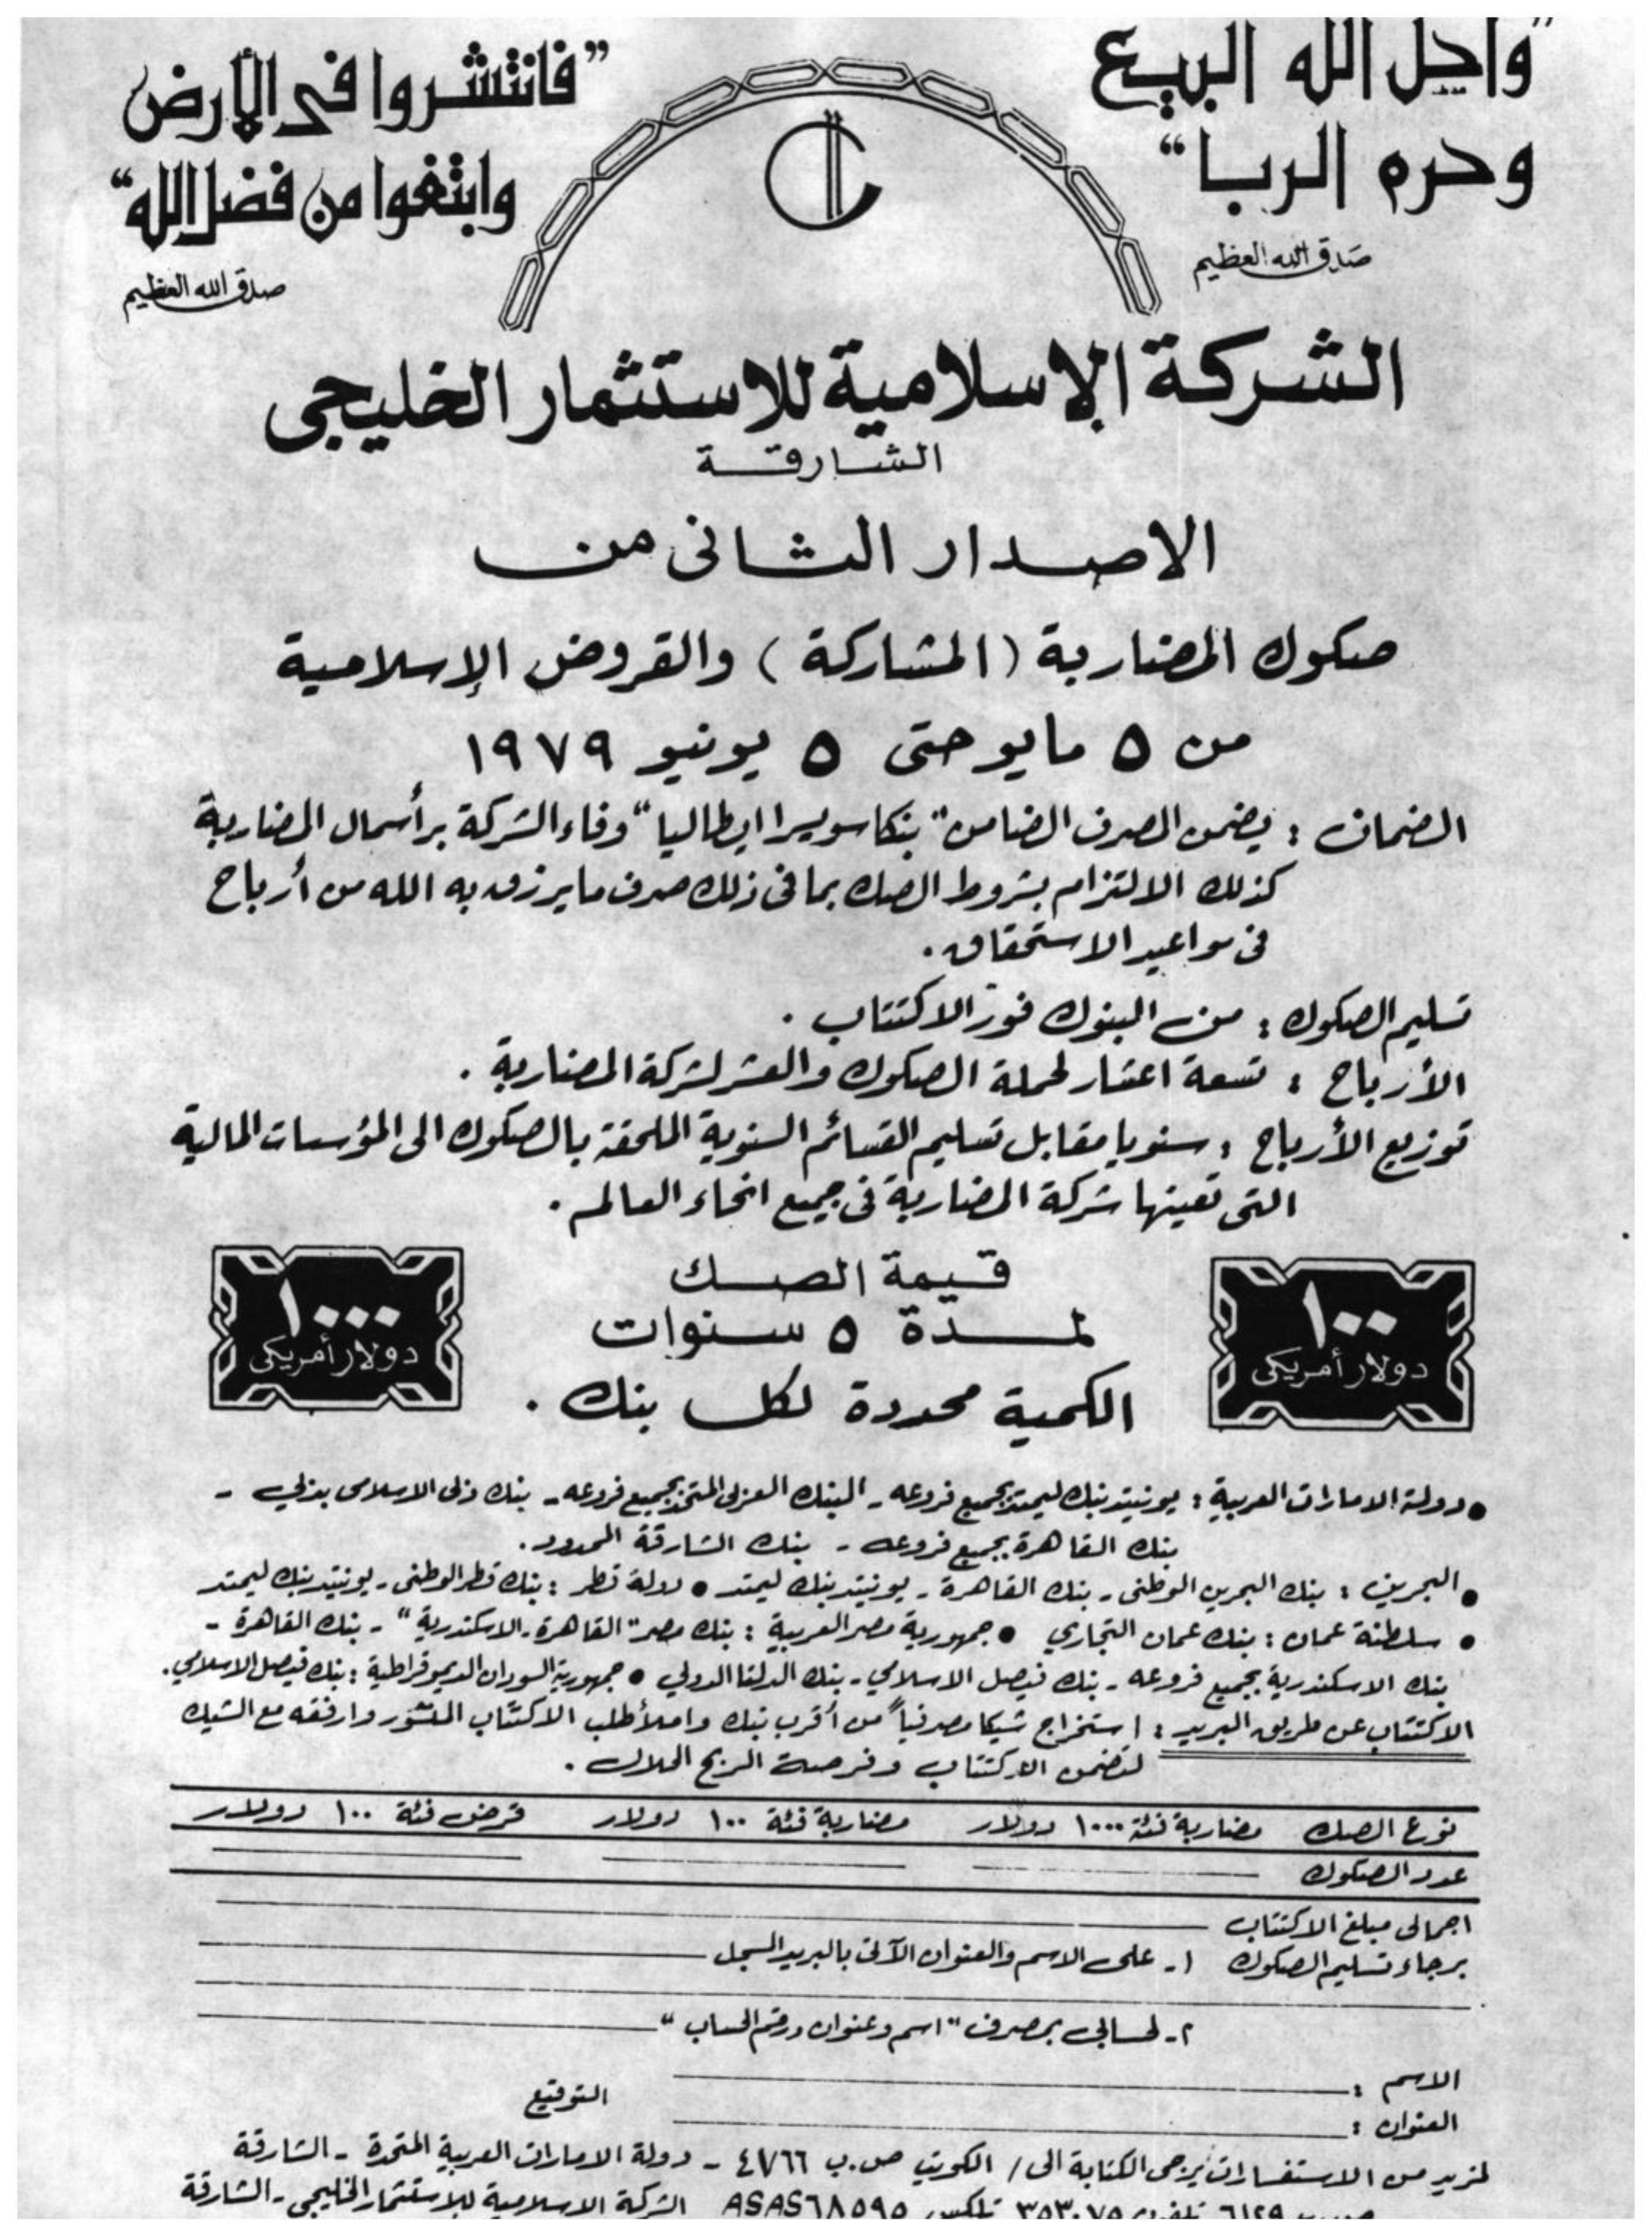 "وأحل الله البيع
وحرم الربا"
صدق الله العظيم
"فانتشروا فى الأرض
وابتغوا من فضل الله"
صدق الله العظيم
الشركة الإسلامية للاستثمار الخليجى
الشارقة
الاصدار الثانى من
صكوك المضاربة (المشاركة) والقروض الإسلامية
من ٥ مايو حتى ٥ يونيو ١٩٧٩
الضمان : يضمن المصرف الضامن "بنكا سويسرا ايطاليا" وفاء الشركة برأسمال المضاربة
كذلك الالتزام بشروط الصك بما فى ذلك صرف ما يرزق به الله من أرباح
فى مواعيد الاستحقاق .
تسليم الصكوك : من البنوك فور الاكتتاب .
الأرباح : تسعة اعشار لحملة الصكوك والعشر لشركة المضاربة .
توزيع الأرباح : سنويا مقابل تسليم القسائم السنوية الملحقة بالصكوك الى المؤسسات المالية
التى تعينها شركة المضاربة فى جميع انحاء العالم .
١٠٠
دولار أمريكى
قيمة الصك
لمدة ٥ سنوات
الكمية محدودة لكل بنك .
١٠٠٠
دولار أمريكى
• دولة الامارات العربية : يونيتد بنك ليمتد بجميع فروعه - البنك العربى المتحد بجميع فروعه - بنك دبى الاسلامى بدبي -
بنك القاهرة بجميع فروعه - بنك الشارقة المحدود .
• البحرين : بنك البحرين الوطنى - بنك القاهرة - يونيتد بنك ليمتد • دولة قطر : بنك قطر الوطنى - يونيتد بنك ليمتد
• سلطنة عمان : بنك عمان التجاري • جمهورية مصر العربية : بنك مصر "القاهرة - الاسكندرية" - بنك القاهرة -
بنك الاسكندرية بجميع فروعه - بنك فيصل الاسلامي - بنك الدلتا الدولي • جمهورية السودان الديموقراطية : بنك فيصل الاسلامي .
الاكتتاب عن طريق البريد : استخراج شيكا مصرفياً من أقرب بنك واملأ طلب الاكتتاب المنشور وارفقه مع الشيك
لتضمن الاكتتاب وفرصة الربح الحلال .
نوع الصك مضاربة فئة ١٠٠٠ دولار مضاربة فئة ١٠٠ دولار قرض فئة ١٠٠ دولار
عدد الصكوك
اجمالى مبلغ الاكتتاب
برجاء تسليم الصكوك ١- على الاسم والعنوان الآتى بالبريد المسجل
٢- لحسابي بمصرف "اسم وعنوان ورقم الحساب"
الاسم :
التوقيع
العنوان :
لمزيد من الاستفسارات يرجى الكتابة الى / الكويت ص.ب ٤٧٦٦ - دولة الامارات العربية المتحدة - الشارقة
٦١٢٩ تلفون ٣٥٣٠٧٥ تلكس ASAS ٦٨٥٩٥ الشركة الاسلامية للاستثمار الخليجى - الشارقة